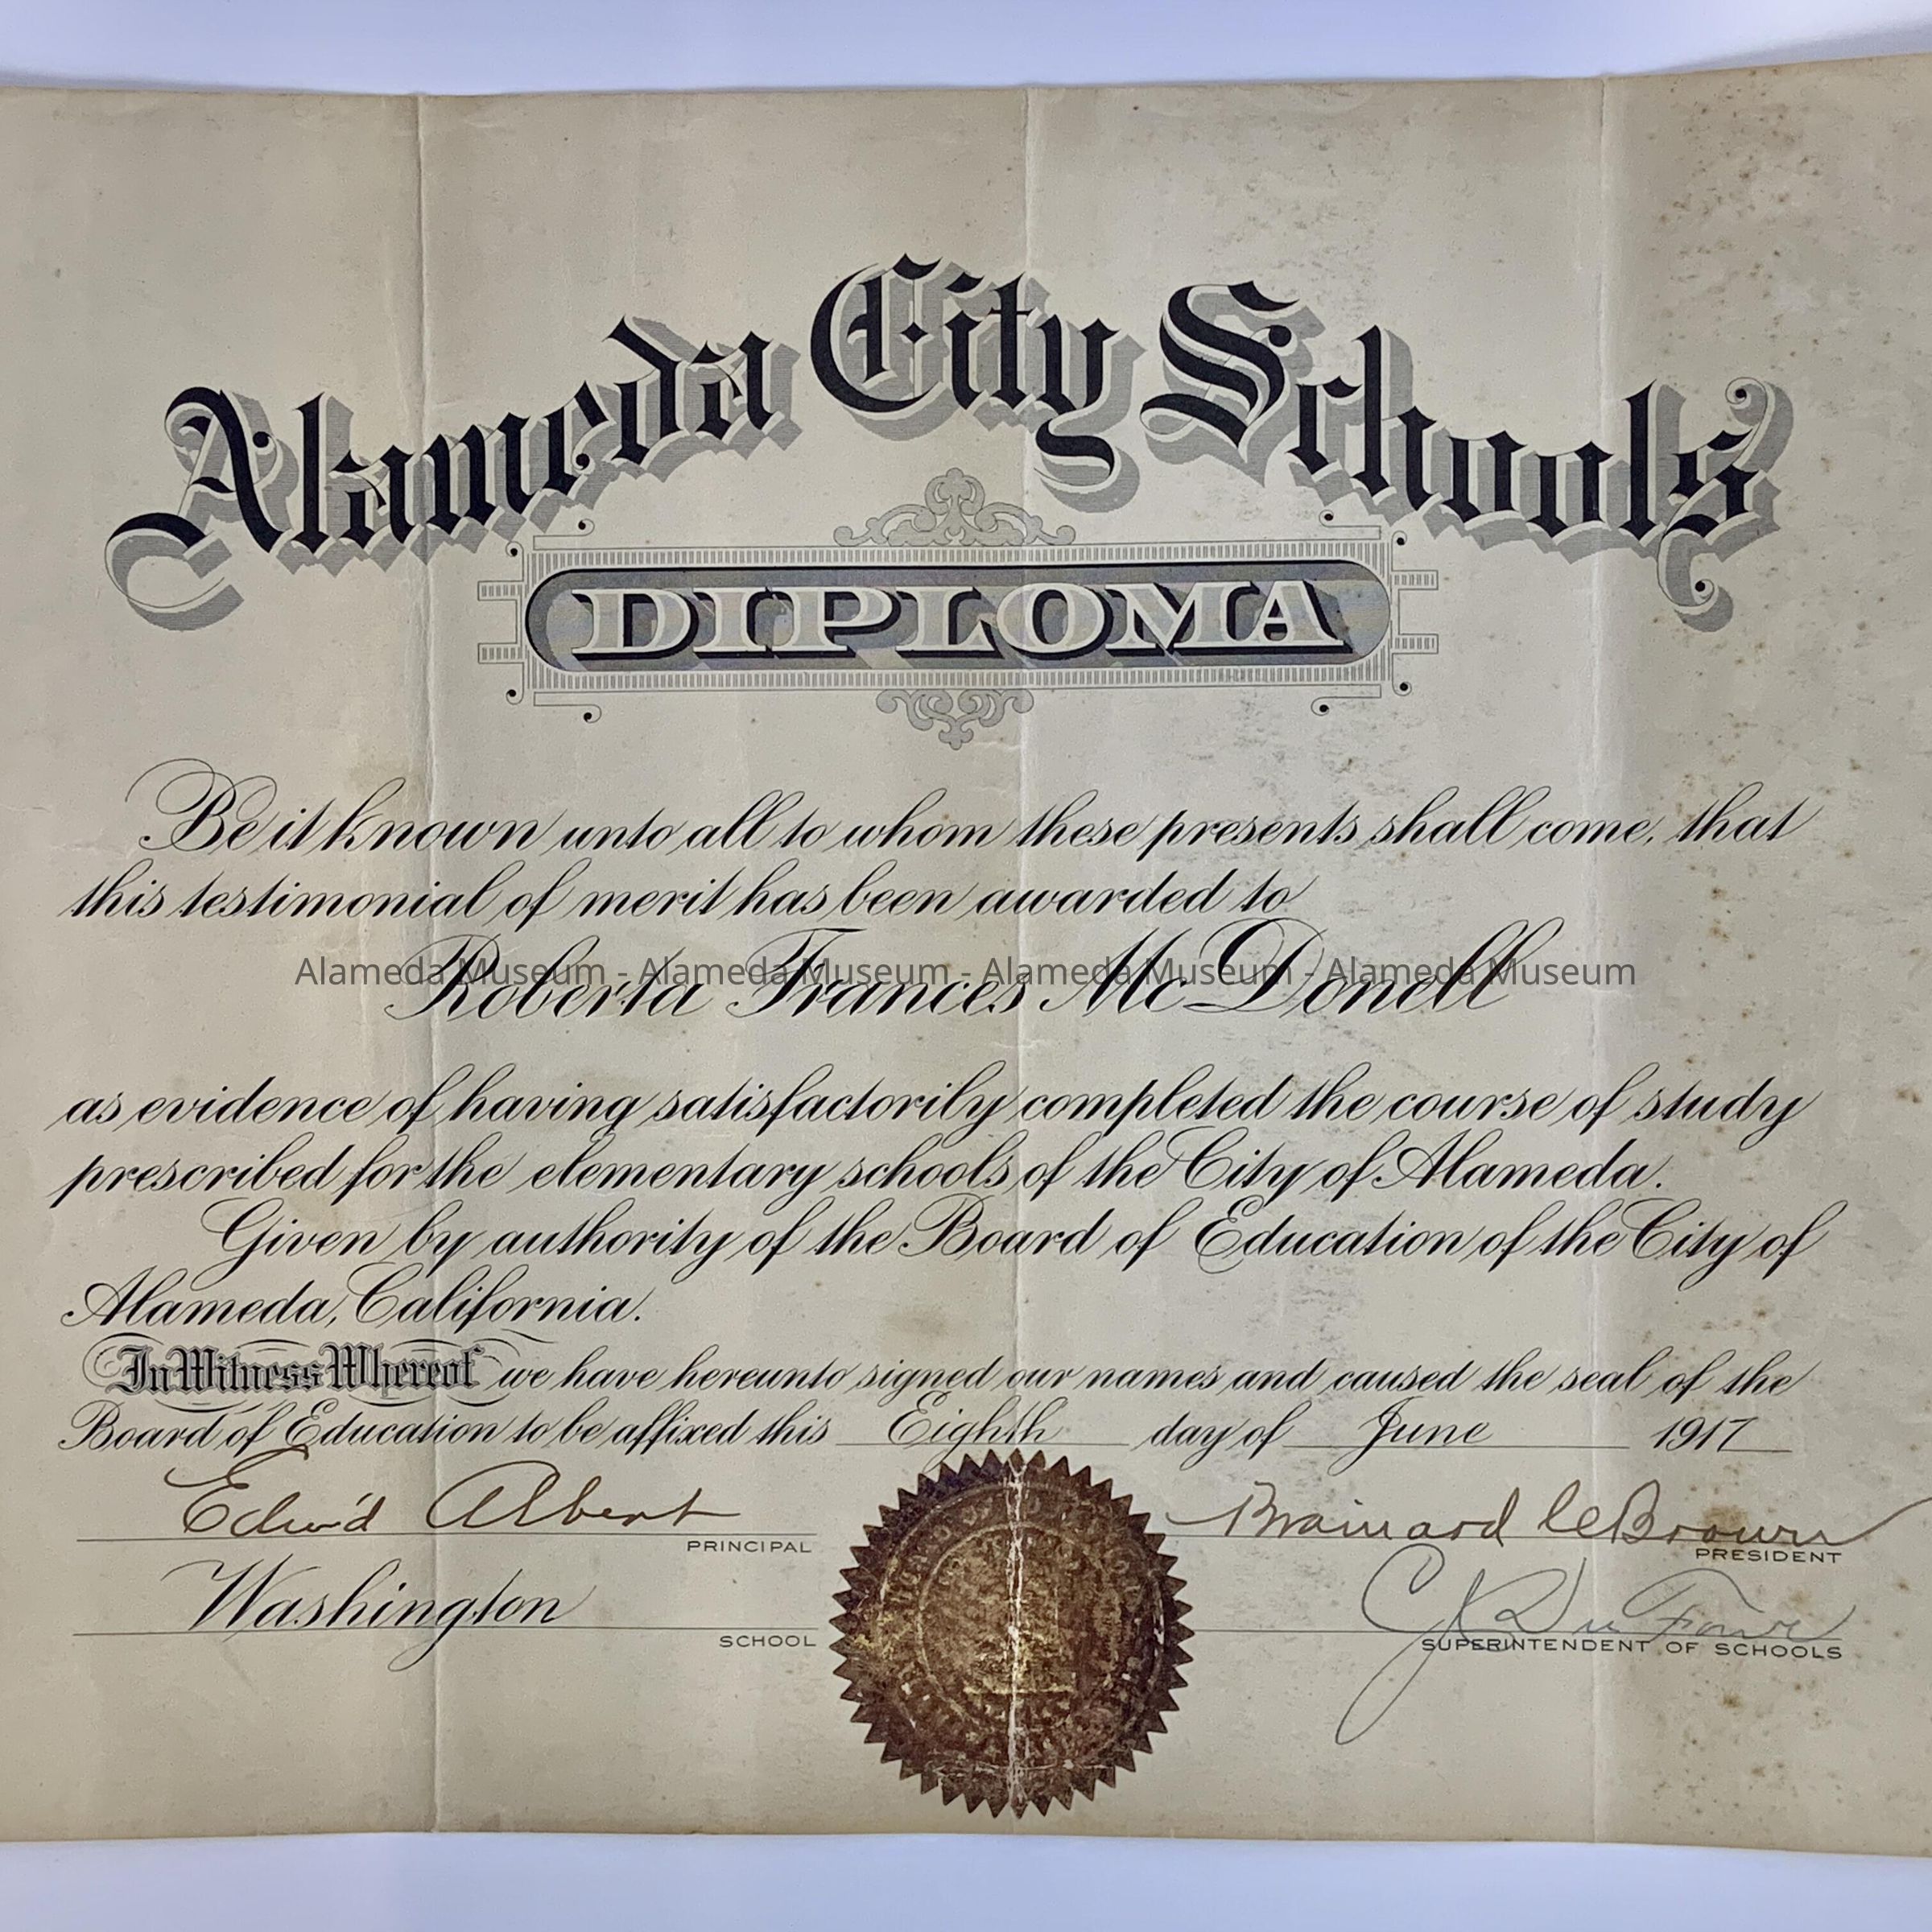 Alameda City Schools
DIPLOMA
Be it known unto all to whom these presents shall come, that
this testimonial of merit has been awarded to
Alameda Museum - Alameda Museum - Alameda Museum - Alameda Museum
Roberta Frances McDonell
as evidence of having satisfactorily completed the course of study
prescribed for the elementary schools of the City of Alameda.
Given by authority of the Board of Education of the City of
Alameda, California.
In Witness Whereof we have hereunto signed our names and caused the seal of the
Board of Education to be affixed this Eighth day of June 1917
Edw'd Albert
PRINCIPAL
Brainard C Brown
PRESIDENT
Washington
SCHOOL
C J Du Four
SUPERINTENDENT OF SCHOOLS